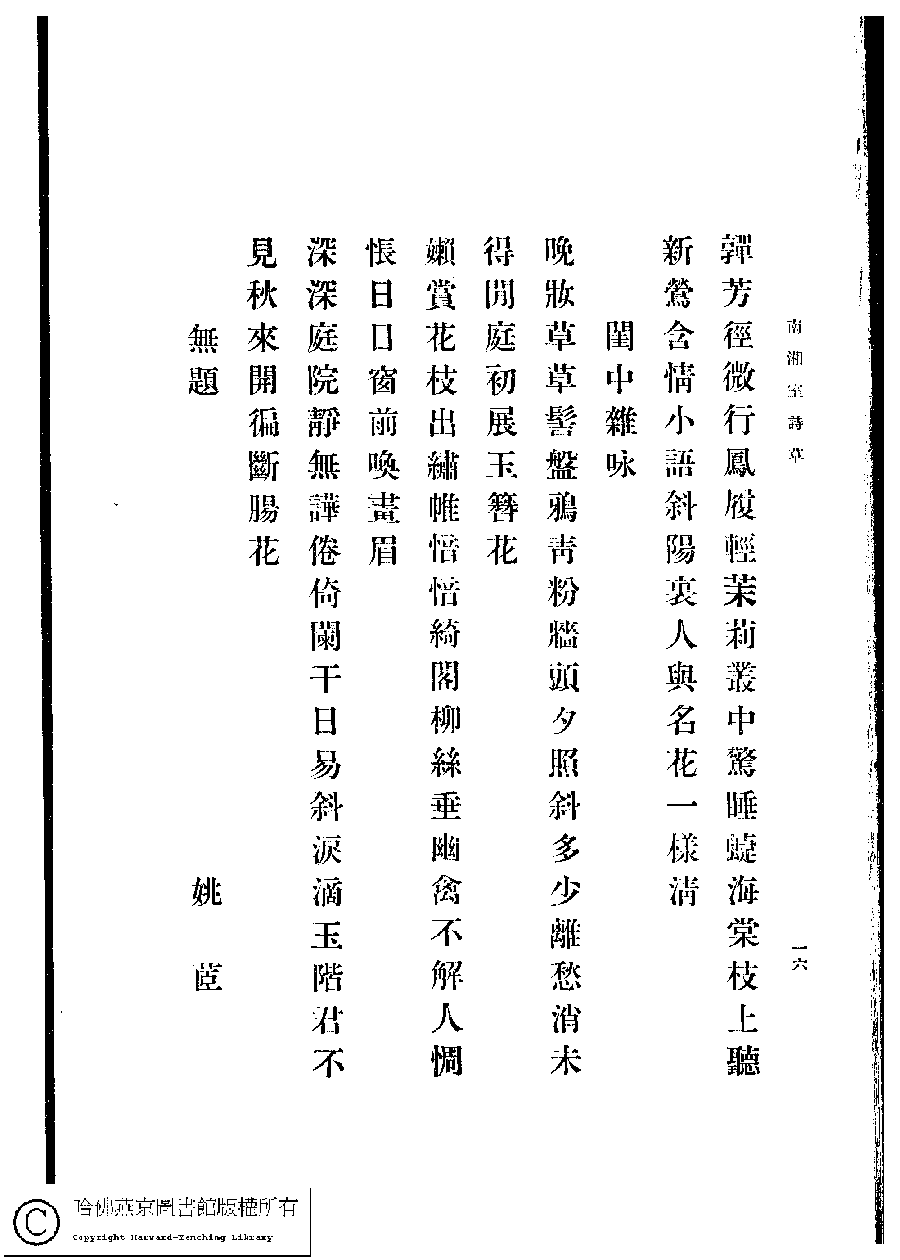 南湘室詩草
一六
嚲芳徑微行鳳屐輕茉莉叢中驚睡蜨海棠枝上聽
新鶯含情小語斜陽裏人與名花一樣淸
閨中雜咏
晚妝草草髻盤鴉靑粉牆頭夕照斜多少離愁消未
得閒庭初展玉簪花
嬾賞花枝出繡帷愔愔綺閣柳絲垂幽禽不解人惆
悵日日窗前喚畫眉
深深庭院靜無譁倦倚闌干日易斜淚滴玉階君不
見秋來開徧斷腸花
無題
姚茝
哈佛燕京圖書館版權所有
Copyright Harvard-Yenching Library